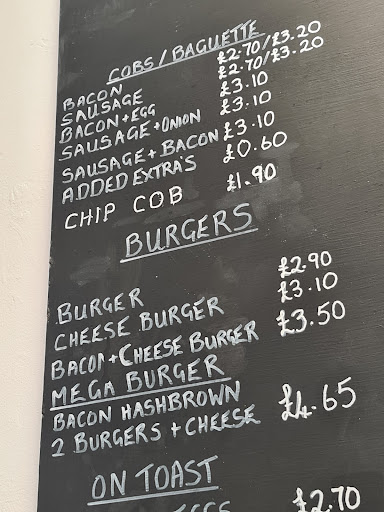 COBS / BAGUETTE
BACON £2.70/£3.20
SAUSAGE £2.70/£3.20
BACON+EGG £3.10
SAUSAGE+ONION £3.10
SAUSAGE+BACON £3.10
ADDED EXTRA'S £0.60
CHIP COB £1.90
BURGERS
BURGER £2.90
CHEESE BURGER £3.10
BACON+CHEESE BURGER £3.50
MEGA BURGER
BACON HASHBROWN
2 BURGERS + CHEESE £4.65
ON TOAST
EGGS £2.70